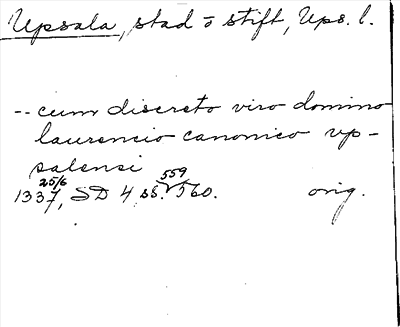 Upsala, stad o stift, Ups. l.
-- cum discreto viro domino
laurencio canonico vp-
salensi
25/6 559
1337, SD 4 ss. 560. orig.